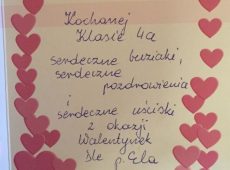 Kochanej
Klasie 4a
serdeczne buziaki,
serdeczne
pozdrowienia
i
serdeczne uściski
z okazji
Walentynek
śle p. Ela